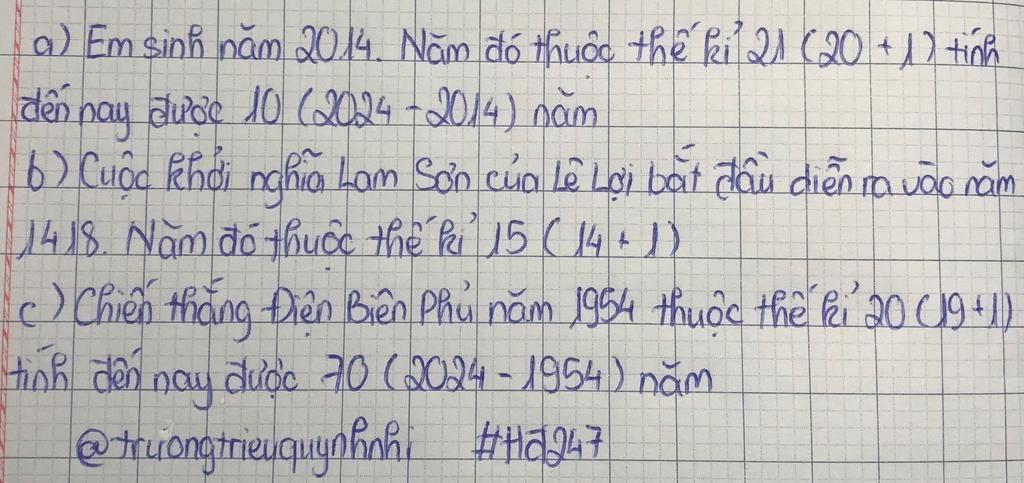 a) Em sinh năm 2014. Năm đó thuộc thế kỉ 21 (20 + 1) tính
đến nay được 10 (2024 - 2014) năm
b) Cuộc khởi nghĩa Lam Sơn của Lê Lợi bắt đầu diễn ra vào năm
1418. Năm đó thuộc thế kỉ 15 (14 + 1)
c) Chiến thắng Điện Biên Phủ năm 1954 thuộc thế kỉ 20 (19+1)
tính đến nay được 70 (2024 - 1954) năm
@truongtrieuquynhnhi #Hd247